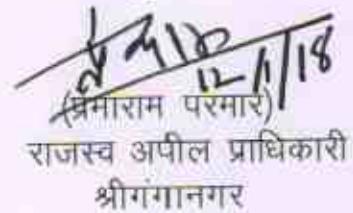 12/1/18
(प्रेमाराम परमार)
राजस्व अपील प्राधिकारी
श्रीगंगानगर